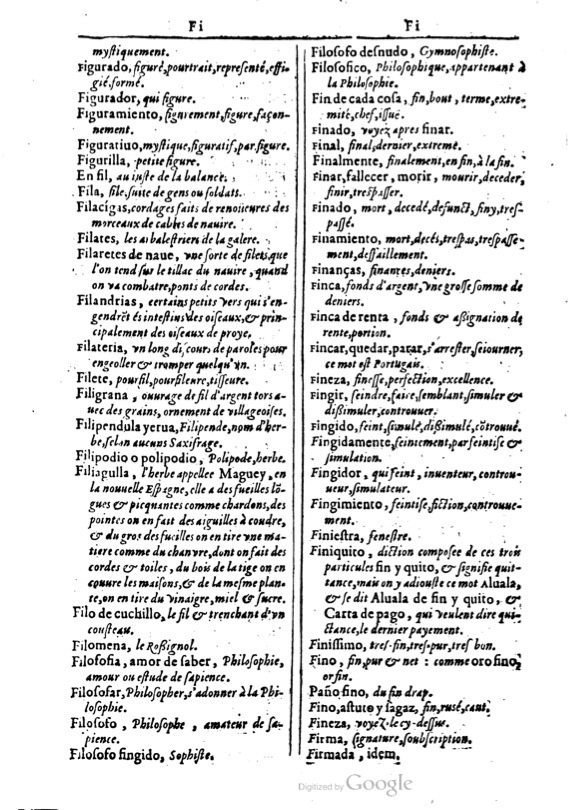 Fi
myſtiquement.
Figurado, figuré, pourtrait, repreſenté, effi-
gié, formé.
Figurador, qui figure.
Figuramiento, figurement, figure, façon-
nement.
Figuratiuo, myſtique, figuratif, par figure.
Figurilla, petite figure.
En fil, au iuſte de la balance.
Fila, file, ſuite de gens ou ſoldats.
Filacigas, cordages faits de renoüeures des
morceaux de cables de nauire.
Filates, les arbaleſtriers de la galere.
Filaretes de naue, vne ſorte de filets que
l'on tend ſur le tillac du nauire, quand
on va combatre, ponts de cordes.
Filandrias, certains petits vers qui s'en-
gendrẽt és inteſtins des oiſeaux, & prin-
cipalement des oiſeaux de proye.
Filateria, vn long diſcours de paroles pour
engeoller & tromper quelqu'vn.
Filete, pourfil, pourfileure, tiſſeure.
Filigrana, ouurage de fil d'argent tors a-
uec des grains, ornement de villageoiſes.
Filipendula yerua, Filipende, nom d'her-
be, ſelon aucuns Saxifrage.
Filipodio o polipodio, Polipode, herbe.
Filiagulla, l'herbe appellee Maguey, en
la nouuelle Eſpagne, elle a des fueilles lõ-
gues & picquantes comme chardons, des
pointes on en fait des aiguilles à coudre,
& du gros des fueilles on en tire vne ma-
tiere comme du chanvre, dont on fait des
cordes & toiles, du bois de la tige on en
couure les maiſons, & de la meſme plan-
te, on en tire du vinaigre, miel & ſucre.
Filo de cuchillo, le fil & trenchant d'vn
couſteau.
Filomena, le Roßignol.
Filoſofia, amor de ſaber, Philoſophie,
amour ou eſtude de ſapience.
Filoſofar, Philoſopher, s'adonner à la Phi-
loſophie.
Filoſofo, Philoſophe, amateur de ſa-
pience.
Filoſofo fingido, Sophiſte.
Fi
Filoſofo deſnudo, Gymnoſophiſte.
Filoſofico, Philoſophique, appartenant à
la Philoſophie.
Fin de cada coſa, fin, bout, terme, extre-
mité, chef, iſſuë.
Finado, voyez apres finar.
Final, final, dernier, extreme.
Finalmente, finalement, en fin, à la fin.
Finar, fallecer, morir, mourir, deceder,
finir, treſpaſſer.
Finado, mort, decedé, defunct, finy, treſ-
paſſé.
Finamiento, mort, decés, treſpas, treſpaſſe-
ment, deffaillement.
Finanças, finances, deniers.
Finca, fonds d'argent, vne groſſe ſomme de
deniers.
Finca de renta, fonds & aßignation de
rente, portion.
Fincar, quedar, parar, s'arreſter, ſeiourner,
ce mot eſt Portugais.
Fineza, fineſſe, perfection, excellence.
Fingir, feindre, faire, ſemblant, ſimuler &
dißimuler, controuuer.
Fingido, feint, ſimulé, dißimulé, cõtrouué.
Fingidamente, feintement, par feintiſe &
ſimulation.
Fingidor, qui feint, inuenteur, controu-
ueur, ſimulateur.
Fingimiento, feintiſe, fiction, controuue-
ment.
Finieſtra, feneſtre.
Finiquito, diction compoſee de ces trois
particules fin y quito, & ſignifie quit-
tance, mais on y adiouſte ce mot Aluala,
& ſe dit Aluala de fin y quito, &
Carta de pago, qui veulent dire qui-
ctance, le dernier payement.
Finiſſimo, treſ-fin, treſ-pur, treſ bon.
Fino, fin, pur & net : comme oro fino,
or fin.
Paño fino, du fin drap.
Fino, aſtuto y ſagaz, fin, ruſé, caut.
Fineza, voyez-le cy-deſſus.
Firma, ſignature, ſoubſcription.
Firmada, idem.
Digitized by Google